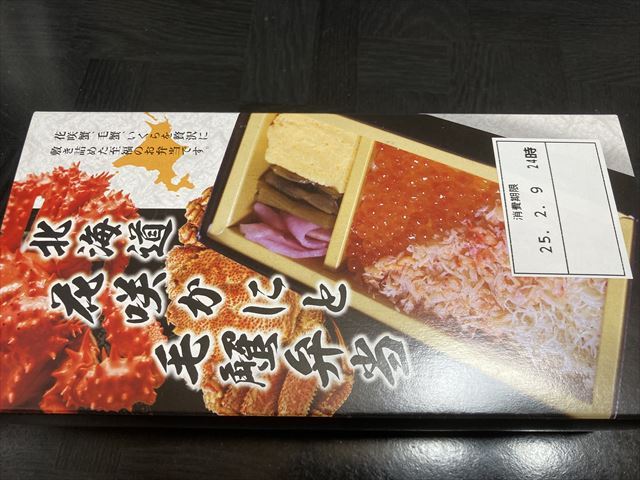 花咲蟹、毛蟹、いくらを贅沢に
敷き詰めた至福のお弁当です。
北海道
花咲かにと
毛蟹弁当
消費期限
25. 2. 9 24時